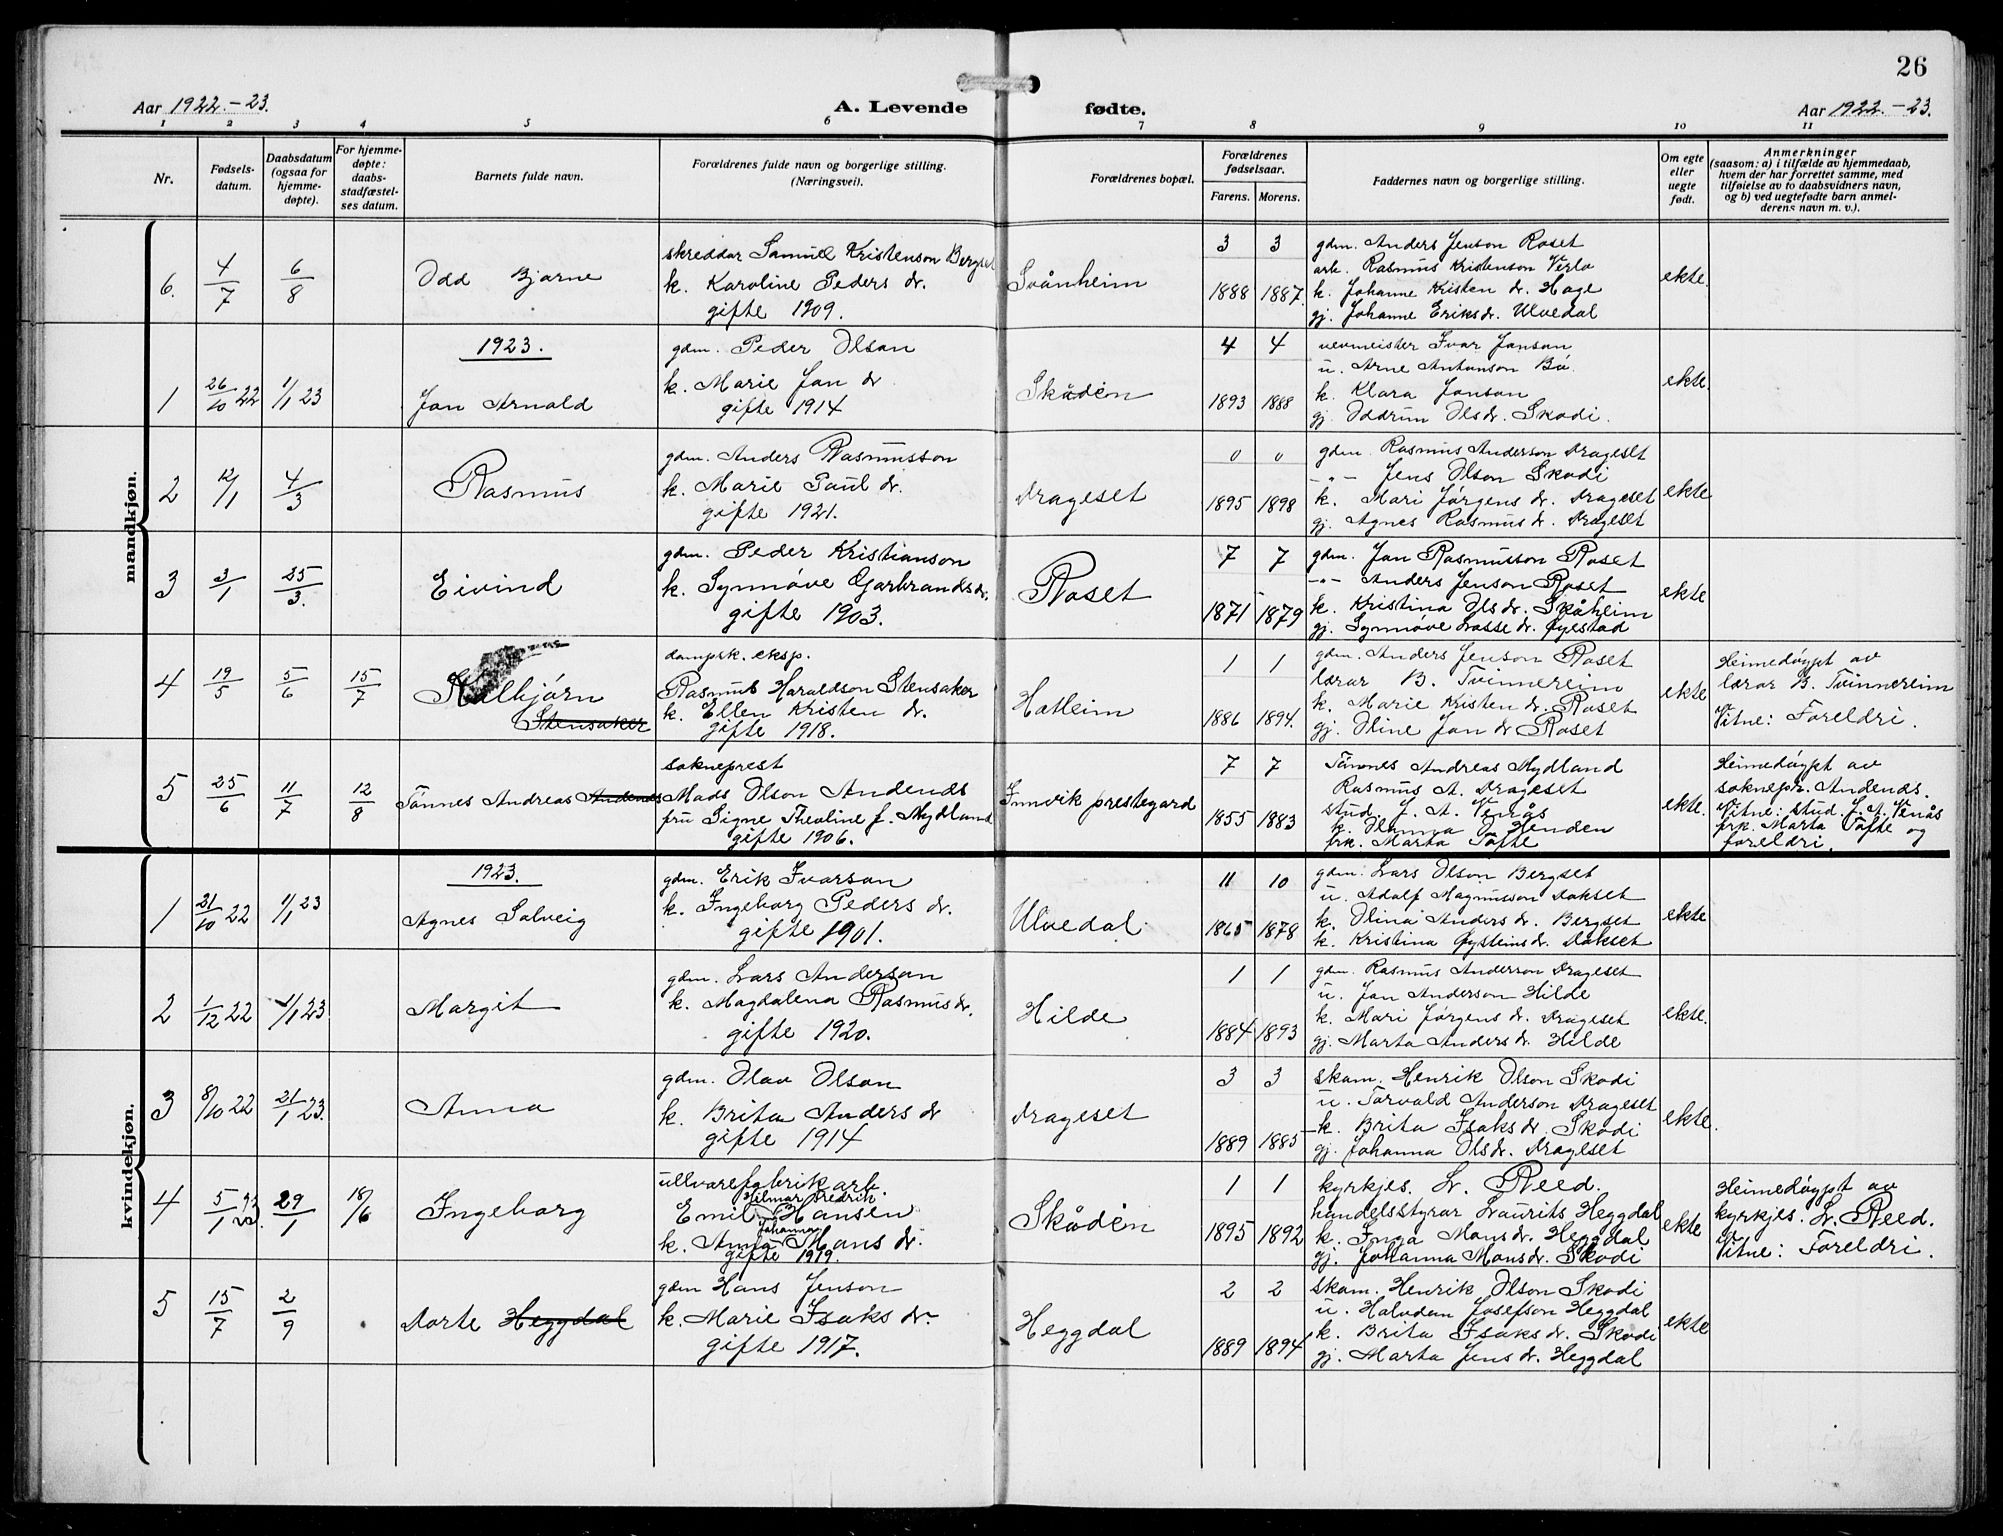 26
Aar 1922.-23.
A. Levende fødte.
Aar 1922.-23.
1 2 3 4 5 6 7 8 9 10 11
Nr.
Fødsels-
datum.
Daabsdatum
(ogsaa for
hjemme-
døpte).
For hjemme-
døpte:
daabs-
stadfæstel-
ses datum.
Barnets fulde navn.
Forældrenes fulde navn og borgerlige stilling.
(Næringsvei).
Forældrenes bopæl.
Forældrenes
fødselsaar.
Farens. Morens.
Faddernes navn og borgerlige stilling.
Om egte
eller
uegte
født.
Anmerkninger
(saasom: a) i tilfælde av hjemmedaab,
hvem der har forrettet samme, med
tilføielse av to daabsvidners navn,
og b) ved uegtefødte barn anmel-
derens navn m. v.).
mandkjøn.
6. 4/7 6/8
Odd Bjarne
skreddar Samuel Kristenson Bergset
k. Karoline Peders dr.
gifte 1909.
Svånheim
3 3
1888 1887.
gdm. Anders Jenson Roset
arb. Rasmus Kristenson Verlo
k. Johanne Kristen dr. Hage
gj. Johanne Eriksdr. Ulvedal
ekte.
1923.
1 26/10 22 1/1 23
Jan Arnold
gdm. Peder Olson
k. Marie Jan dr
gifte 1914
Skåden
4 4
1893 1888
vevmeister Ivar Janson
u. Arne Antonson Bø.
k. Klara Janson
gj. Oddrun Olsdr. Skodi.
ekte.
2 12/1 4/3
Rasmus
gdm. Anders Rasmusson
k. Marie Paul dr.
gifte 1921.
Drageset
0 0
1895 1898
gdm. Rasmus Anderson Drageset
-"- Jens Olson Skodi
k. Mari Jørgens dr. Drageset
gj. Agnes Rasmus dr. Drageset
ekte
3 3/1 25/3.
Eivind
gdm. Peder Kristianson
k. Synnøve Garbrandsdr.
gifte 1903.
Roset
7 7
1871 1879
gdm. Jan Rasmusson Roset
-"- Anders Jenson Roset
k. Kristina Olsdr. Skåheim
gj. Synnøve Lasse dr. Øyestad
ekte
4 19/5 5/6 15/7
Kolbjørn
Stensaker
dampsk. eksp.
Rasmus Haraldson Stensaker
k. Ellen Kristen dr.
gifte 1918.
Hatleim
1 1
1886 1894.
gdm. Anders Jenson Roset
lærar B. Tvinnereim
k. Marie Kristen dr. Roset
gj. Oline Jan dr Roset
ekte
Heimedøypt av
lærar B. Tvinnereim
Vitne: Foreldri.
5 25/6 11/7 12/8
Tønnes Andreas Andenæs
sokneprest
Mads Olson Andenæs
fru Signe Theoline f. Mydland
gifte 1906.
Innvik prestegard
7 7
1855 1883
Tønnes Andreas Mydland
Rasmus A. Drageset
stud. J. A. Venås
k. Hanna O Henden
frk. Marta Tofte
ekte.
Heimedøypt av
soknepr. Andenæs.
Vitne: stud. J. A. Venås
frk. Marta Tofte og
foreldri.
kvindekjøn.
1923.
1 21/10 22 1/1 23
Agnes Solveig
gdm. Erik Ivarson
k. Ingeborg Peders dr.
gifte 1901.
Ulvedal
11 10
1865 1878
gdm. Lars Olson Bergset
u. Adolf Magnusson Dokset
k. Olina Anders dr. Bergset
k. Kristina Øysteinsdr. Dokset
ekte
2 1/12 22 1/1 23.
Margit
gdm. Lars Anderson
k. Magdalena Rasmusdr.
gifte 1920.
Hilde
1 1
1884 1893
gdm. Rasmus Anderson Drageset
u. Jan Anderson Hilde
k. Mari Jørgens dr. Drageset
gj. Marta Anders dr. Hilde
ekte.
3 8/10 22 21/1 23.
Anna
gdm. Olav Olson
k. Brita Anders dr
gifte 1914
Drageset
3 3
1889 1885
skom. Henrik Olson Skodi
u. Torvald Anderson Drageset
k. Brita Isaks dr. Skodi
gj. Johanna Olsdr. Drageset
ekte.
4 5/1 29/1 18/6
Ingeborg
ullvarefabrik arb.
Hilmar Fredrik
Emil Hansen
Johanna
k. Anna Mons dr.
gifte 1919.
Skåden
1 1
1895 1892
kyrkjes. L. Reed.
handelsstyrar Laurits Heggdal
k. Inga Monsdr. Heggdal
gj. Johanna Monsdr. Skodi
ekte
Heimedøypt av
kyrkjes. L. Reed.
Vitne: Foreldri.
5 15/7 2/9
Dorte Heggdal
gdm Hans Jenson
k. Marie Isaks dr.
gifte 1917.
Heggdal
2 2
1889 1894
skom. Henrik Olson Skodi
u. Halvdan Josefson Heggdal
k. Brita Isaks dr. Skodi
gj. Marta Jens dr. Heggdal
ekte